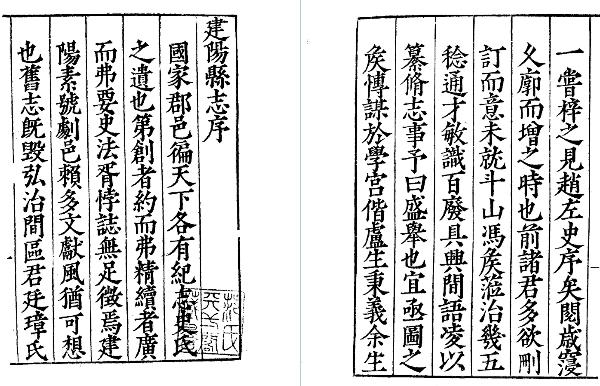 建陽縣志序
國家郡邑徧天下各有紀志史氏
之遺也第創者約而弗精續者廣
而弗要史法胥悖誌無足徵焉建
陽素號劇邑賴多文獻風猶可想
也舊志旣毀弘治間區君廷璋氏
一嘗梓之見趙左史序矣閱歳寖
久廓而增之時也前諸君多欲刪
訂而意未就斗山馮矦蒞治幾五
稔通才敏識百廢具興間語凌以
纂脩志事予曰盛舉也宜亟圖之
矦愽謀於學宮偕盧生秉義余生